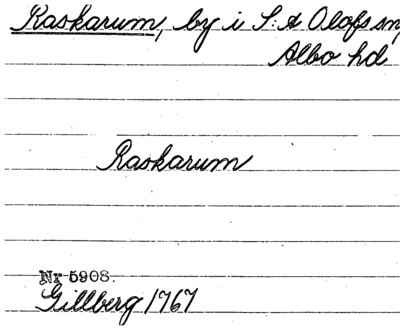 Raskarum, by i S:t Olofs sn,
Albo hd
Raskarum
Nr 5908.
Gillberg 1767